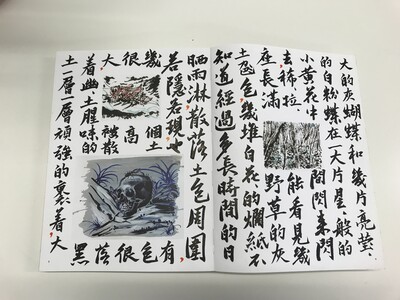 大的灰蝴蝶和幾片亮藍
的白粉蝶在一大片星般的
小黃花中閃來閃
去，稀拉能看見幾
座長滿野草的灰
土包，幾堆白花的爛紙不
知道經過多長時間的日
晒雨淋散落土包周圍
若隱若現，有
幾個土包
很高很
大，散蔭
着幽土腥味的黑
土一層一層頑強的裹着大